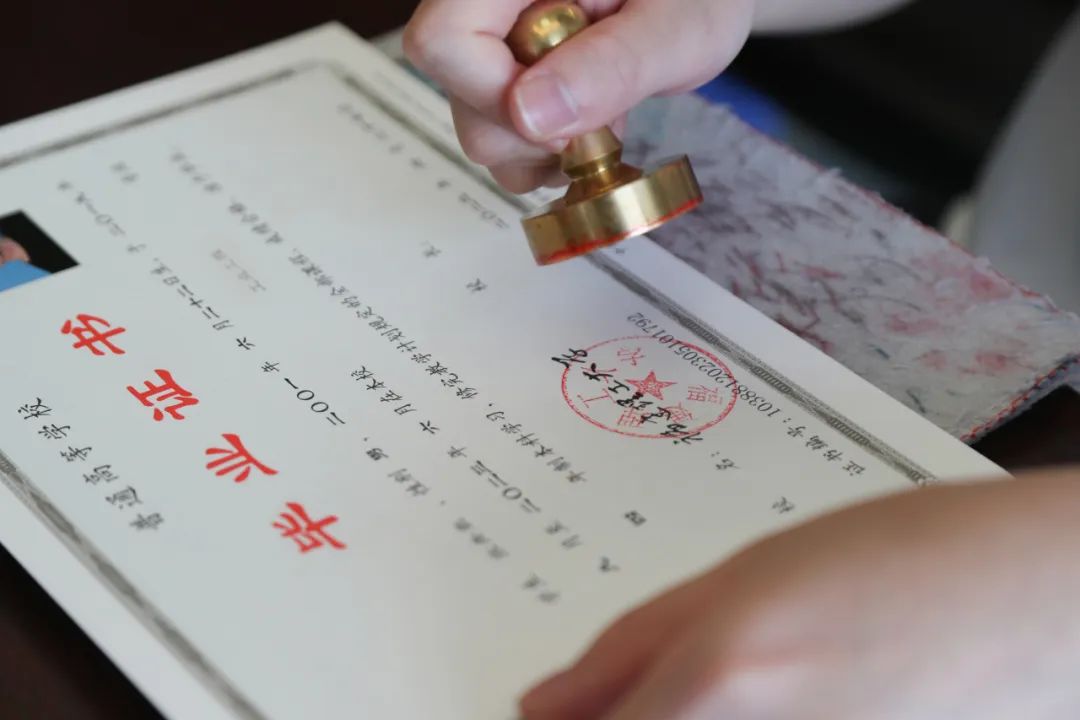 普通高等学校
毕业证书
学生 性别 男, 二〇〇一年 六 月二十二日生,于二〇一九
月至二〇二三年 六 月在本校
四 年制本科学习,修完教学计划规定的全部课程,成绩合格,准予毕业。
校 名:福建理工大学 校 长:
福建理工大学
证书编号:103881202305101792 二〇二三年